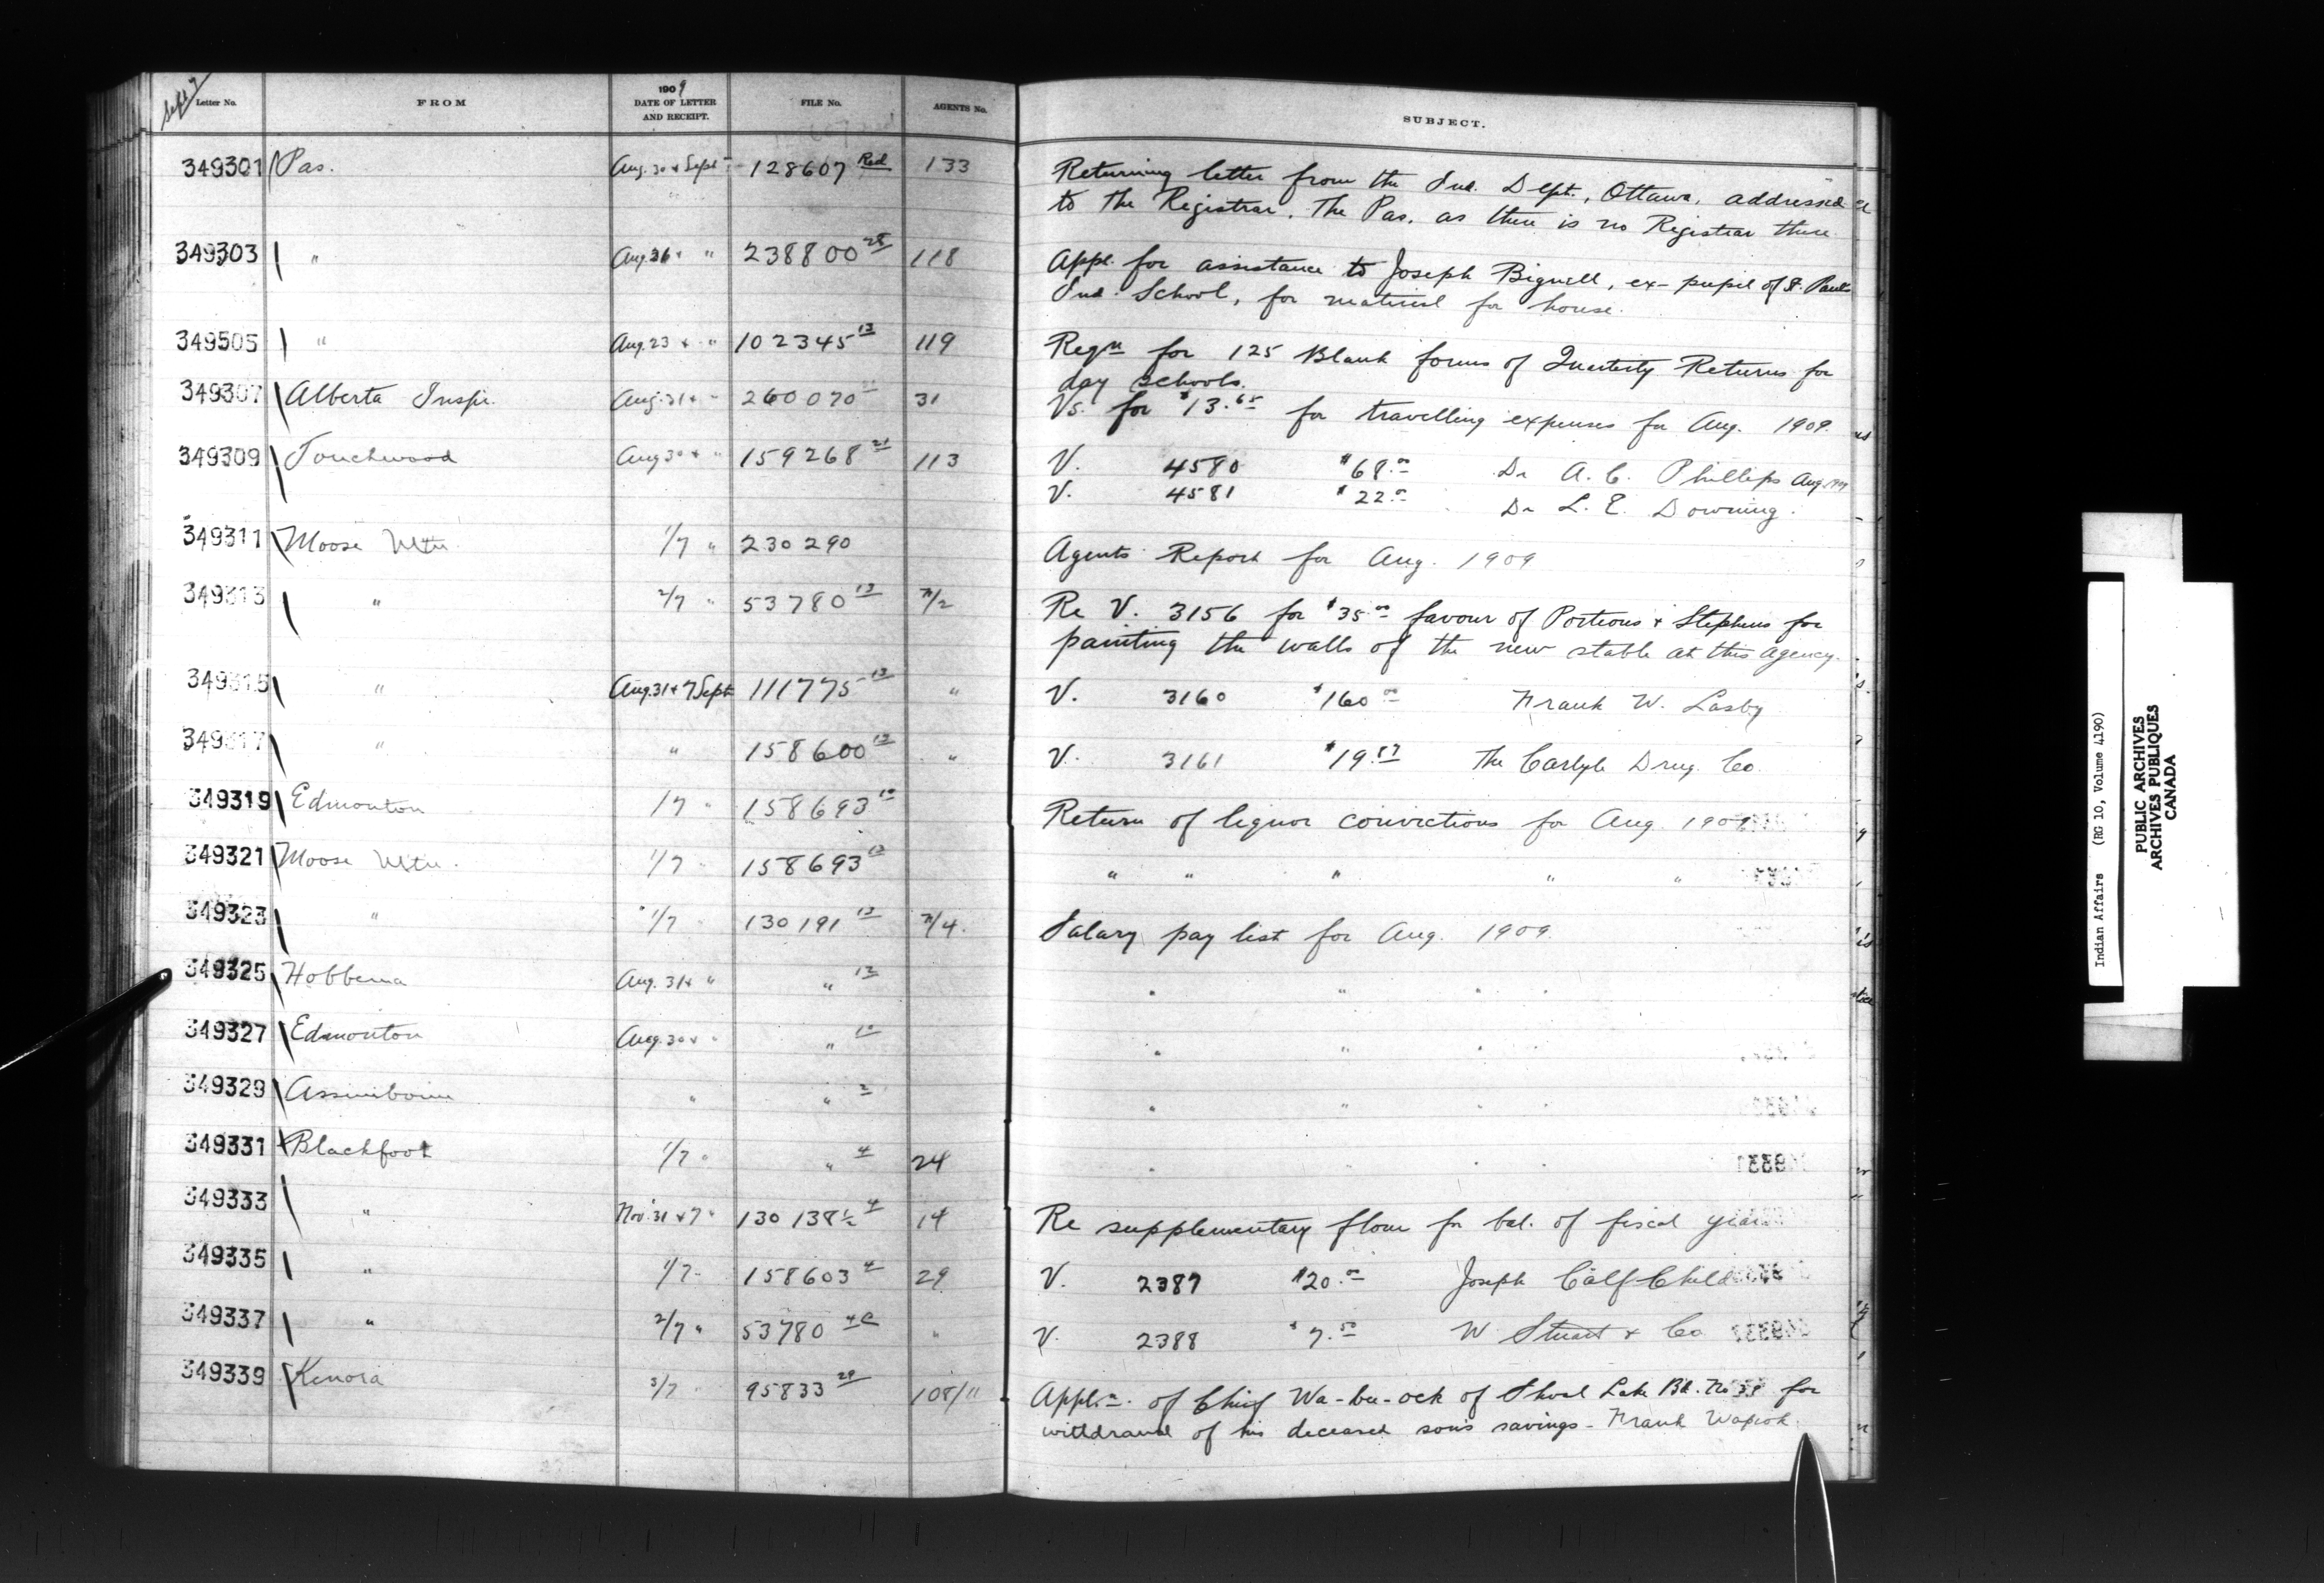 Sept 7
Letter No. FROM 1909 DATE OF LETTER AND RECEIPT. FILE No. AGENTS No. SUBJECT.
349301 Pas. Aug. 30 & Sept 7 128607 Red 133 Returning letter from the Ind. Dept., Ottawa, addressed
to the Registrar, The Pas, as there is no Registrar there
349303 " Aug 26 & " 238800 28 118 Appl. for assistance to Joseph Bignell, ex-pupil of St. Pauls
Ind. School, for material for house.
349305 " Aug. 23 & " 102345 13 119 Reqn for 125 Blank forms of Quarterly Returns for
day schools.
349307 Alberta Insp. Aug. 31 & " 260070 31 Vs. for $13.65 for travelling expenses for Aug. 1909.
349309 Touchwood Aug 30 & " 159268 21 113 V. 4580 $68.00 Dr A. C. Phillips Aug. 1909
V. 4581 $22.00 Dr L. E. Downing.
349311 Moose Mtn. 1/7 " 230290 Agents Report for Aug. 1909
349313 " 2/7 " 53780 13 Re V. 3156 for $35.00 favour of Porteous & Stephens for
painting the walls of the new stable at this agency.
349315 " Aug. 31 & 7 Sept 111775 13 " V. 3160 $160.00 Frank W. Lasby
349317 " " 158600 13 " V. 3161 $19.87 The Carlyle Drug. Co.
349319 Edmonton 1/7 " 158693 10 Return of liquor convictions for Aug. 1909
349321 Moose Mtn. 1/7 " 158693 13 " " " " "
349323 " 1/7 " 130191 13 Salary pay list for Aug. 1909
349325 Hobbema Aug. 31 & " " 12 " " " "
349327 Edmonton Aug. 30 & " " 10 " " " "
349329 Assiniboine " " 2 " " " "
349331 Blackfoot 1/7 " " 4 24 " " " "
349333 " Nov. 31 & 7 " 130138½ 4 14 Re supplementary flour for bal. of fiscal year
349335 " 1/7 " 158603 4 29 V. 2387 $20.00 Joseph Calf Child
349337 " 2/7 " 53780 4C " V. 2388 $7.50 W. Stuart & Co
349339 Kenora 3/7 " 95833 29 108/11 Appl.n. of Chief Wa-bu-ock of Shoal Lake Bd. No 39 for
withdrawal of his deceased son's savings - Frank Wapiok.
Indian Affairs (RG 10, Volume 4190)
PUBLIC ARCHIVES
ARCHIVES PUBLIQUES
CANADA